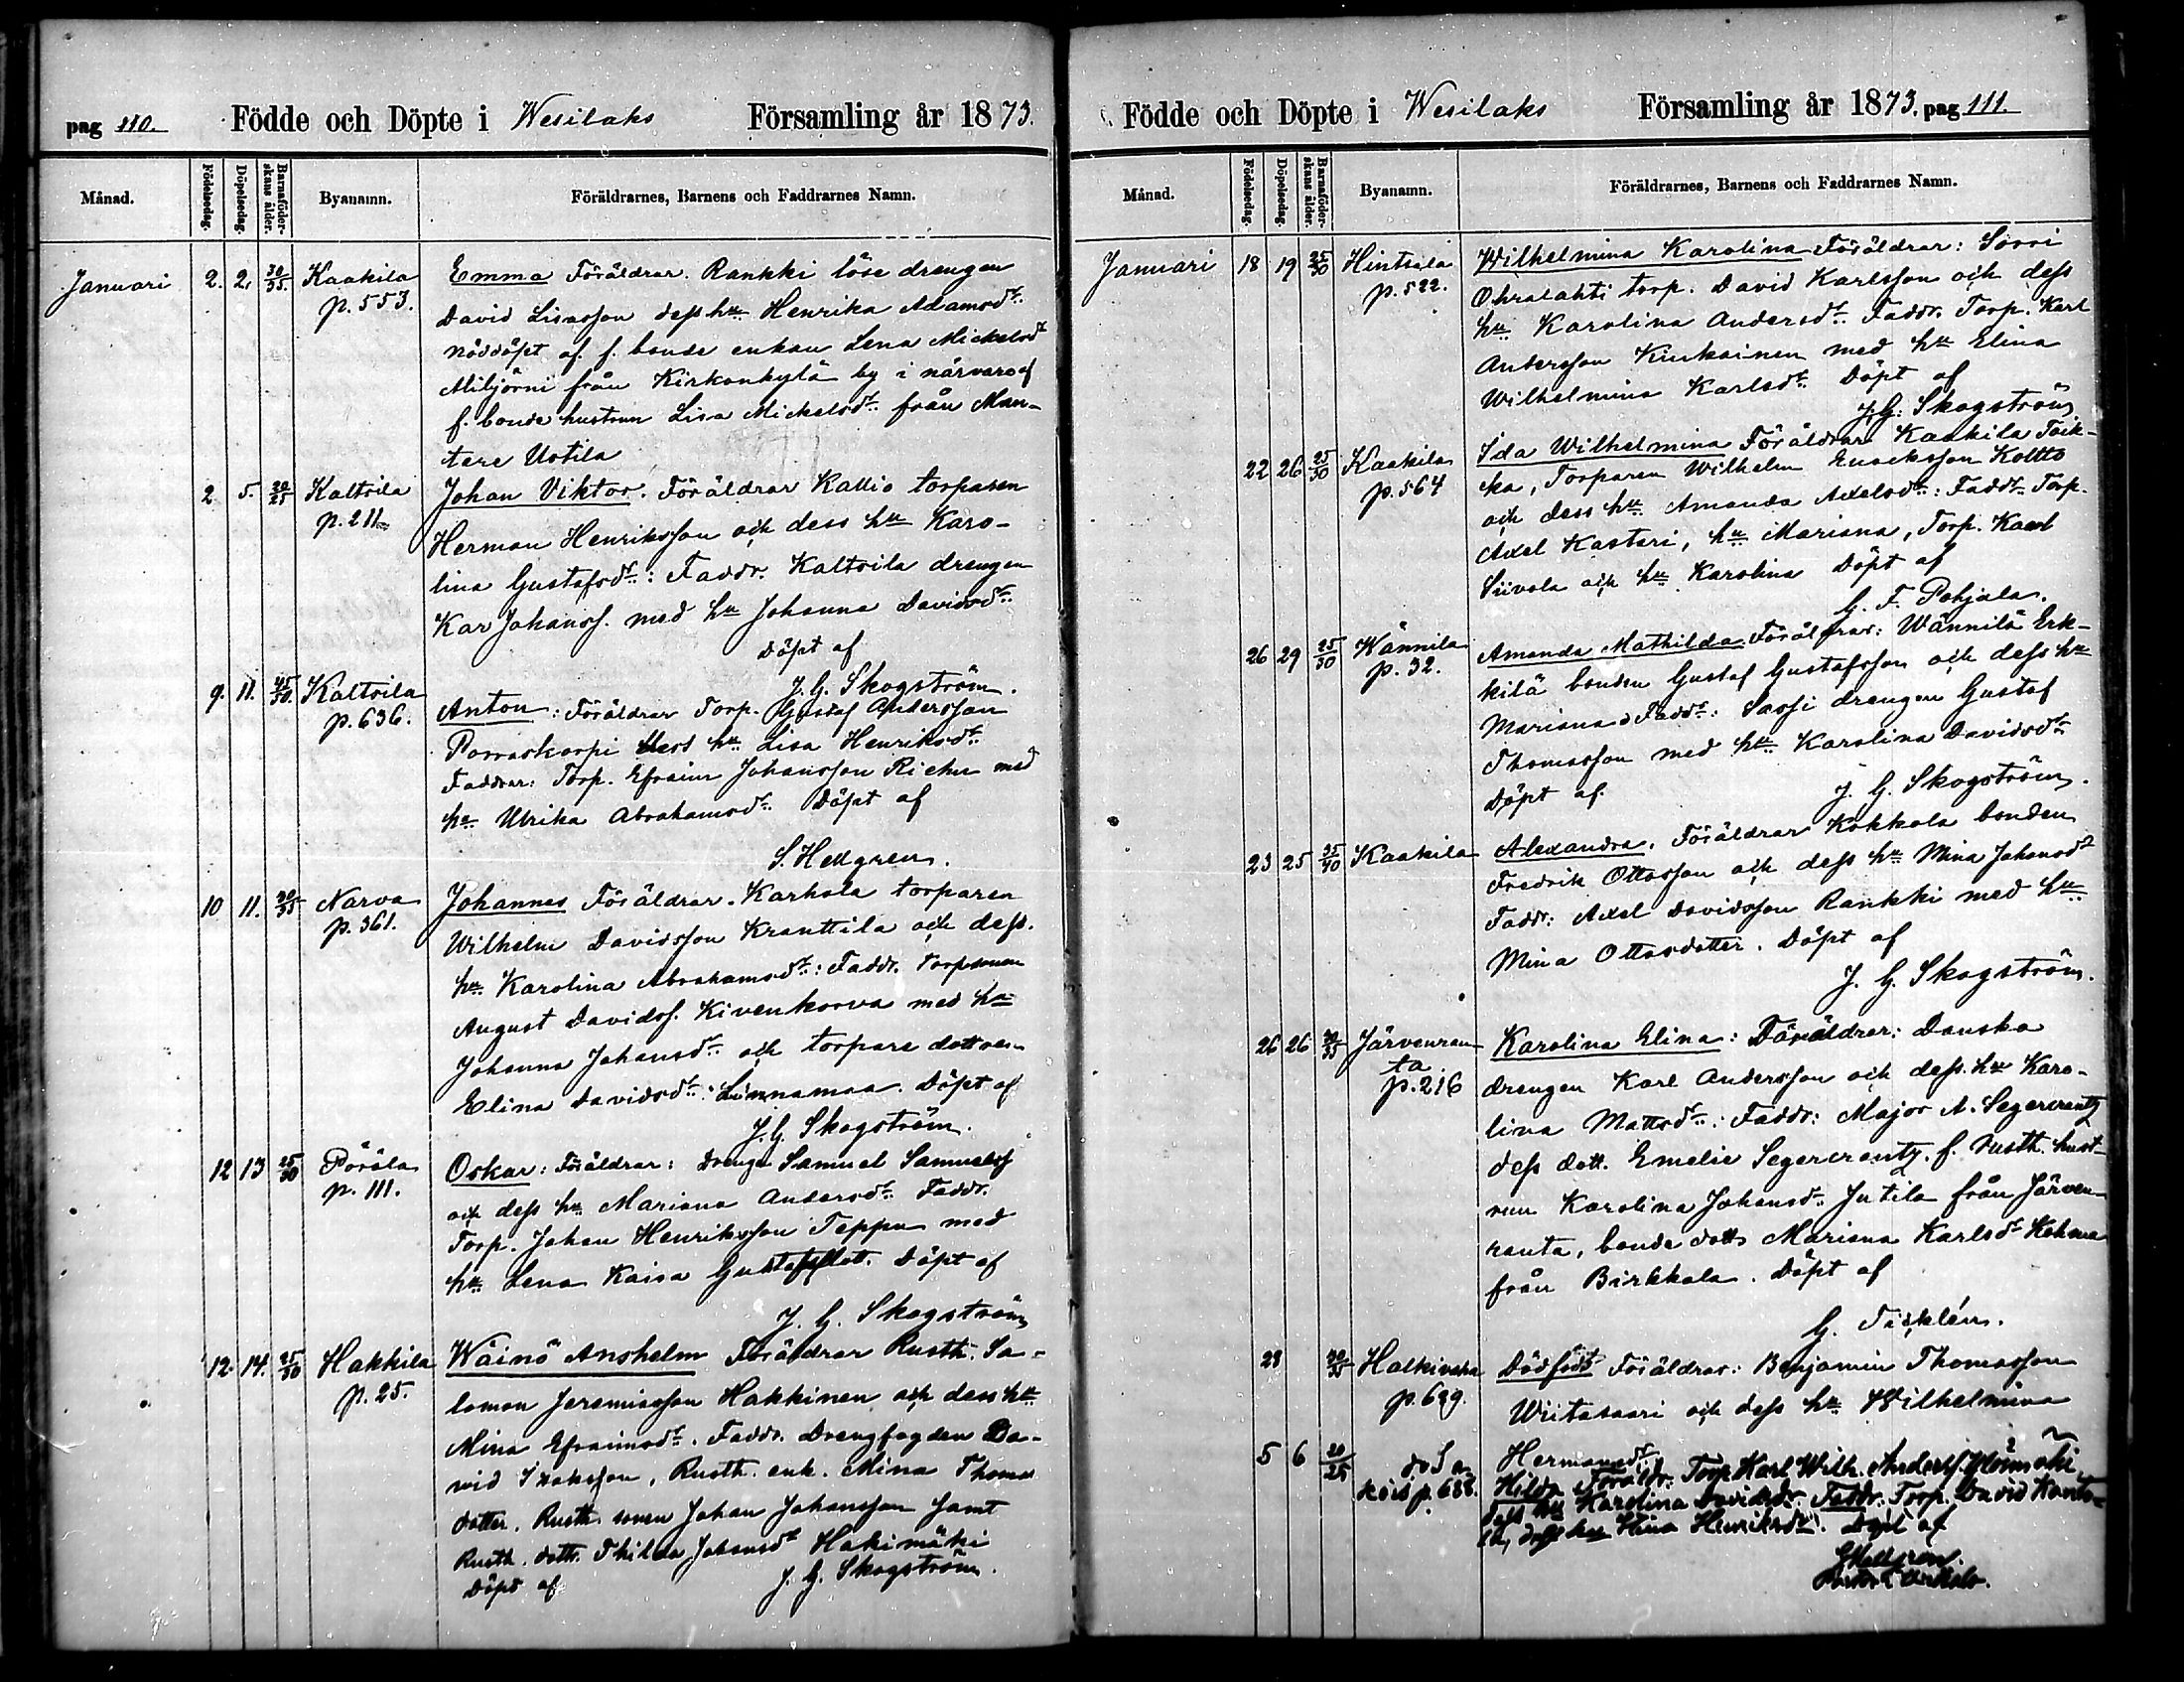 pag 110. Födde och Döpte i Wesilaks Församling år 1873.
Månad. Födelsedag. Döpelsedag. Barnaföderskans ålder. Byanamn. Föräldrarnes, Barnens och Faddrarnes Namn.
Januari 2. 2. 30/35. Kaakila Emma Föräldrar. Rankki löse drengen
p. 553. David Lisasson dess hu Henrika Adamsdr.
nöddöpt af f. bonde enkan Lena Mickelsdr
Miljörni från Kirkonkylä by i närvaro af
f. bonde hustrun Lisa Mickelsdr. från Man-
tere Uotila
2. 5. 20/25 Kaltsila Johan Viktor. Föräldrar Kallio torparen
p. 211 Herman Henriksson och dess hu Karo-
lina Gustafsdr.: Faddr. Kaltsila drengen
Kar Johanss. med hu Johanna Davidsdr.
Döpt af
J. G. Skogström.
9. 11. 45/50. Kaltsila Anton: Föräldrar Torp. Gustaf Andersson
p. 636. Porraskorpi dess hu Lisa Henriksdr.
Faddrar: Torp. Efraim Johansson med
hu Ulrika Abrahamsdr. Döpt af
S. Hellgren.
10 11. 30/35 Narva Johannes Föräldrar. Karhola torparen
p. 361. Wilhelm Davidsson Kranttila och dess.
hu Karolina Abrahamsdr.: Faddr. Torpsonen
August Davidss. Kivenkorva med hu
Johanna Johansdr. och torpare dottren
Elina Davidsdr. Linnamaa. Döpt af
J. G. Skogström.
12 13 25/30 Pöräla Oskar: Föräldrar: Dreng Samuel Samuelss
p. 111. och dess hu Mariana Andersdr. Faddr.
Torp. Johan Henriksson Teppu med
hu Lena Kaisa Döpt af
J. G. Skogström
12. 14. 25/30 Hakkila Wäinö Anshelm Föräldrar Rusth. Sa-
p. 25. lomon Jeremiasson Hakkinen och dess hu
Mina Efraimsdr. Faddr. Drengfogden Da-
vid Isaksson, Rusth. enk. Mina Thomas
dotter. Rusth. sonen Johan Johansson samt
Rusth. dottr. Thilda Johansdr Hakimäki
Döpt af J. G. Skogström.
Födde och Döpte i Wesilaks Församling år 1873. pag 111.
Månad. Födelsedag. Döpelsedag. Barnaföderskans ålder. Byanamn. Föräldrarnes, Barnens och Faddrarnes Namn.
Januari 18 19 25/30 Hintsala Wilhelmina Karolina Föräldrar: Sorri
p. 522. Ohralahti torp. David Karlsson och dess
hu Karolina Andersdr. Faddr. Torp. Karl
Andersson Kiukainen med hu Elina
Wilhelmina Karlsdr. Döpt af
J. G. Skogström
22 26 25/30 Kaakila Ida Wilhelmina Föräldrar Kaakila
p. 564 Torparen Wilhelm Enocksson
och dess hu Amanda Axelsdr.: Faddr. Torp.
Axel Kasteri, hu Mariana, Torp. Karl
Siivola och hu Karolina Döpt af
G. F. Pohjala.
26 29 25/30 Wännilä Amanda Mathilda Föräldrar: Wännilä Erk-
p. 32. kilä bonden Gustaf Gustafsson och dess hu
Mariana Faddr.: Sassi drengen Gustaf
Thomasson med hu Karolina Davidsdr.
Döpt af J. G. Skogström.
23 25 35/40 Kaakila Alexandra. Föräldrar Kokkola bonden
Fredrik Ottosson och dess hu Mina Johansdr
Faddr: Axel Davidsson Rankki med hu
Mina Ottosdotter. Döpt af
J. G. Skogström.
26 26 30/35 Järvenran- Karolina Elina: Föräldrar: Danska
ta drengen Karl Andersson och dess. hu Karo-
p. 216 lina Mattsdr.: Faddr: Major A. Segercrantz
dess dott. Emelie Segercrantz. f. rusth. hust-
run Karolina Johansdr. Jutila från Järven-
ranta, bonde dottr Mariana Karlsdr
från Birkkala. Döpt af
G. Ticklén.
28 30/35 Halkivaha Dödfödt Föräldrar: Benjamin Thomasson
p. 699. Wiitasaari och dess hu Wilhelmina
Hermansdr.
5 6 20/25 Hilda Föräldr. Torp Karl Wilh. Anderss
p. 688. dess hu Karolina Davidsdr. Faddr. Torp. David
dess hu Henriksdr. Döpt af
Hellgren.